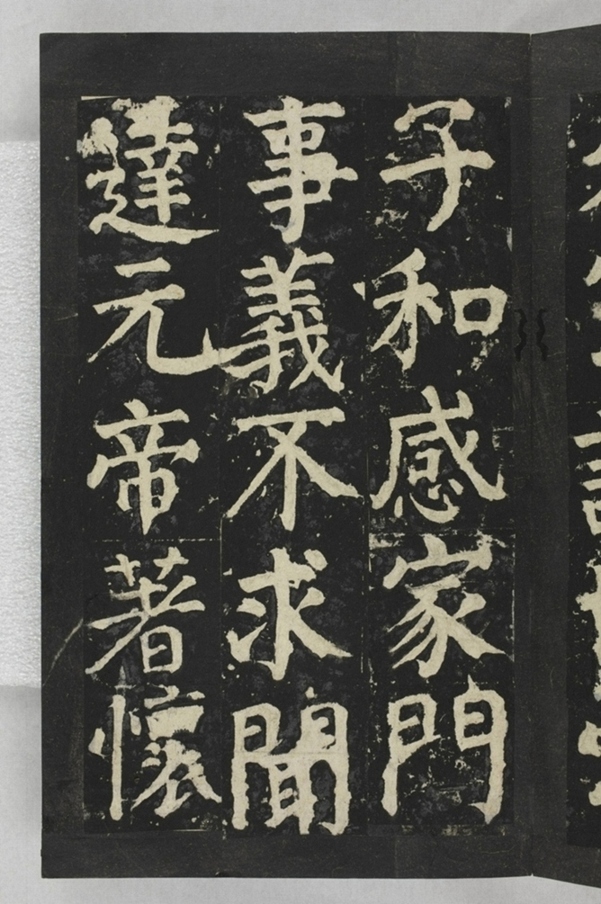 子和感家門
事義不求聞
達元帝著懷